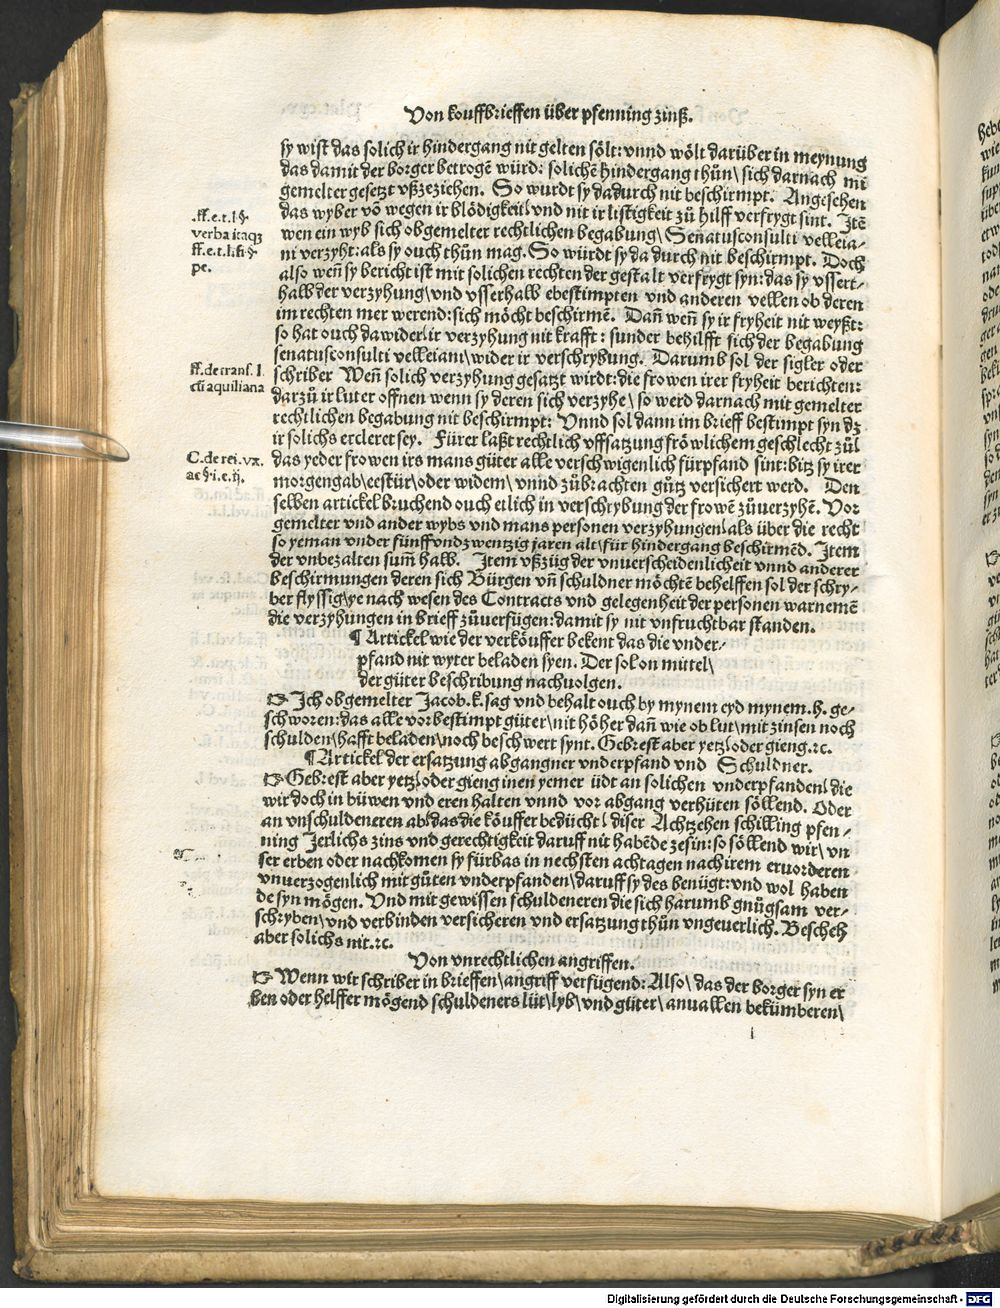 Von kouffbrieffen über pfenning zinß.
sy wist das solich ir hindergang nit gelten sölt: vnnd wölt darüber in meynung
das damit der borger betrogē würd: solichē hindergang thůn\ sich darnach mi
gemelter gesetzt vßzeziehen. So wurdt sy dadurch nit beschirmpt. Angesehen
das wyber vō wegen ir blödigkeit\ vnd nit ir listigkeit zů hilff verfrygt sint. Itē
wen ein wyb sich obgemelter rechtlichen begabung\ Senatusconsulti velleia-
ni verzyht: als sy ouch thůn mag. So würdt sy da durch nit beschirmpt. Doch
also weñ sy bericht ist mit solichen rechten der gestalt verfrygt syn: das sy vssert-
halb der verzyhung\ vnd vsserhalb ebestimpten vnd anderen vellen ob deren
im rechten mer werend: sich möcht beschirmē. Dañ weñ sy ir fryheit nit weyßt:
so hat ouch dawider\ ir verzyhung nit krafft: sunder behilfft sich der begabung
senatusconsulti velleiani\ wider ir verschrybung. Darumb sol der sigler oder
schriber Weñ solich verzyhung gesatzt wirdt: die frowen irer fryheit berichten:
darzů ir luter offnen wenn sy deren sich verzyhe\ so werd darnach mit gemelter
rechtlichen begabung nit beschirmpt: Vnnd sol dann im brieff bestimpt syn dz
ir solichs ercleret sey. Fürer laßt rechtlich vffsatzung frōwlichem geschlecht zů\
das yeder frowen irs mans güter alle verschwigenlich fürpfand sint: bitz sy irer
morgengab\ eestür\ oder widem\ vnnd zůbrachten gůtz versichert werd. Den
selben artickel bruchend ouch etlich in verschrybung der frowē zůuerzyhē. Vor
gemelter vnd ander wybs vnd mans personen verzyhungen\ als über die recht
so yeman vnder fünff vnd zwentzig jaren alt\ für hindergang beschirmēd. Item
der vnbezalten sum̄ halb. Item vßzüg der vnuerscheidenlicheit vnnd anderer
beschirmungen deren sich Bürgen vñ schuldner möchtē behelffen sol der schry-
ber flyssig\ ye nach wesen des Contracts vnd gelegenheit der personen warnemē
die verzyhungen in brieff zůuerfügen: damit sy nit vnfruchtbar standen.
¶ Artickel wie der verköuffer bekent das die vnder-
pfand nit wyter beladen syen. Der sol on mittel\
der güter beschribung nachuolgen.
☞ Ich obgemelter Jacob. k. sag vnd behalt ouch by mynem eyd mynem. h. ge-
schworen: das alle vorbestimpt güter\ nit höher dañ wie ob lut\ mit zinsen noch
schulden\ hafft beladen\ noch beschwert synt. Gebrest aber yetz\ oder gieng. ꝛc.
¶ Artickel der ersatzung abgangner vnderpfand vnd Schuldner.
☞ Gebrest aber yetz\ oder gieng inen yemer üdt an solichen vnderpfanden\ die
wir doch in büwen vnd eren halten vnnd vor abgang verhüten söllend. Oder
an vnschuldeneren ab\ das die köuffer bedücht\ diser Achtzehen schilling pfen-
ning Jerlichs zins vnd gerechtigkeit daruff nit habēde zesin: so söllend wir\ vn
ser erben oder nachkomen sy fürbas in nechsten achtagen nach irem eruorderen
vnuerzogenlich mit gůten vnderpfanden\ daruff sy des benügt: vnd wol haben
de syn mögen. Vnd mit gewissen schuldeneren die sich harumb gnůgsam ver-
schryben\ vnd verbinden versicheren vnd ersatzung thůn vngeuerlich. Bescheh
aber solichs nit. ꝛc.
Von vnrechtlichen angriffen.
☞ Wenn wir schriber in brieffen\ angriff verfügend: Also\ das der borger syn er
ben oder helffer mögend schuldeners lüt\ lyb\ vnd güter\ an vallen bekümberen\
.ff. e. t. l §.
verba itaqꝫ
ff. e. t. l. si §.
pe.
ff. de trans. l.
cū aquiliana
C. de rei. vx.
ac §. i. e. ij.
Digitalisierung gefördert durch die Deutsche Forschungsgemeinschaft - DFG